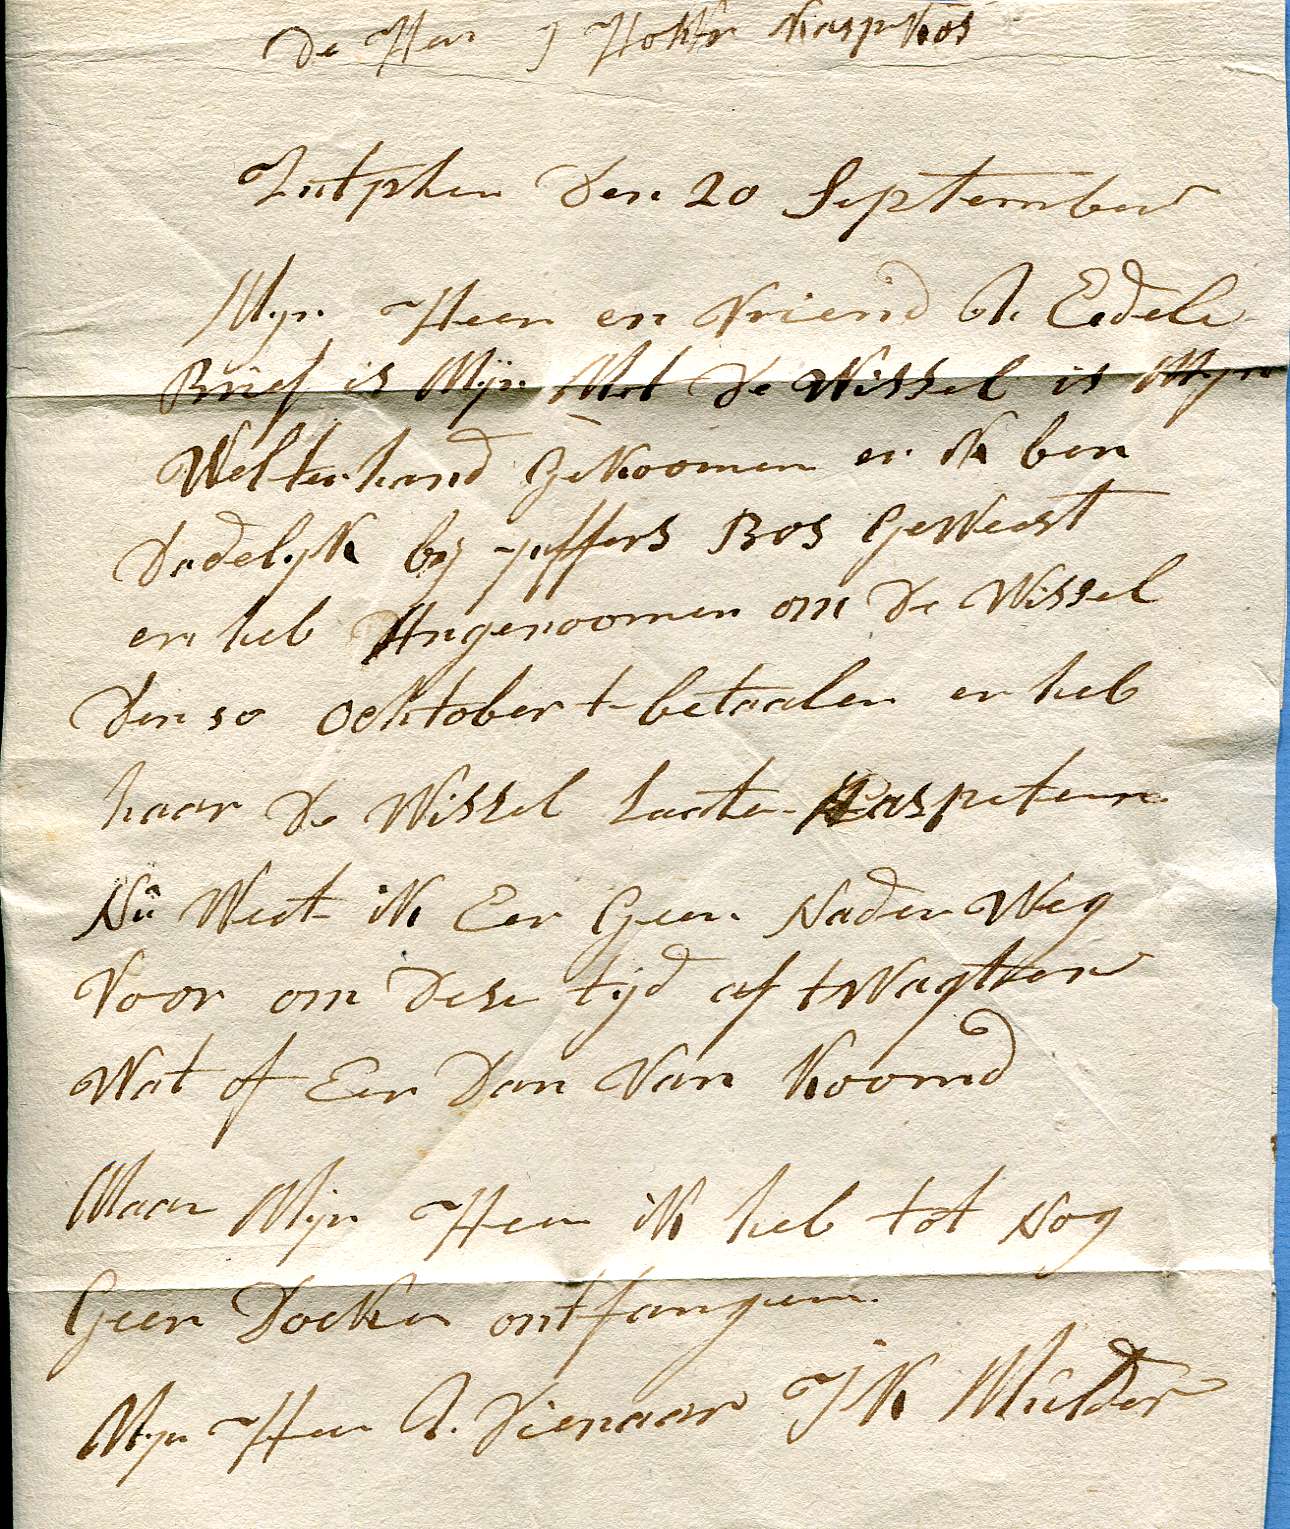 De Heer J
Zutphen Den 20 September
Myn Heer en Vriend U Eedele
Brief is Mijn Met De Wissel is Myn
Welterhand gekoomen en ik ben
Dadelyk by yuffers Bos Geweest
en heb Angenoomen om De Wissel
Den 10 Ocktober te betaalen en heb
haar De Wissel Laaten Aaspeteren
Nu Weet ik Eer Geen Nader Weg
Voor om Dese tyd af t Wagten
Wat of Eer Dan Van Koomd
Maar Mijn Heer ik heb tot Nog
Geen Doeken ontfangen
Myn Heer U. Dienaar J K Mulder